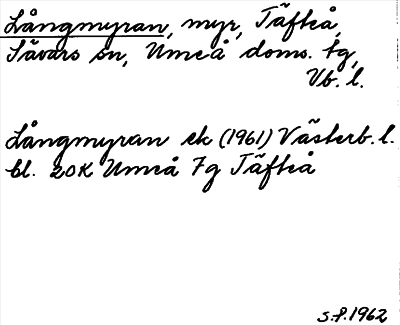 Långmyran, myr, Täfteå,
Sävars sn, Umeå doms. tg,
Vb. l.
Långmyran ek (1961) Västerb. l.
bl. 20K Umeå 7g Täfteå
S.P. 1962